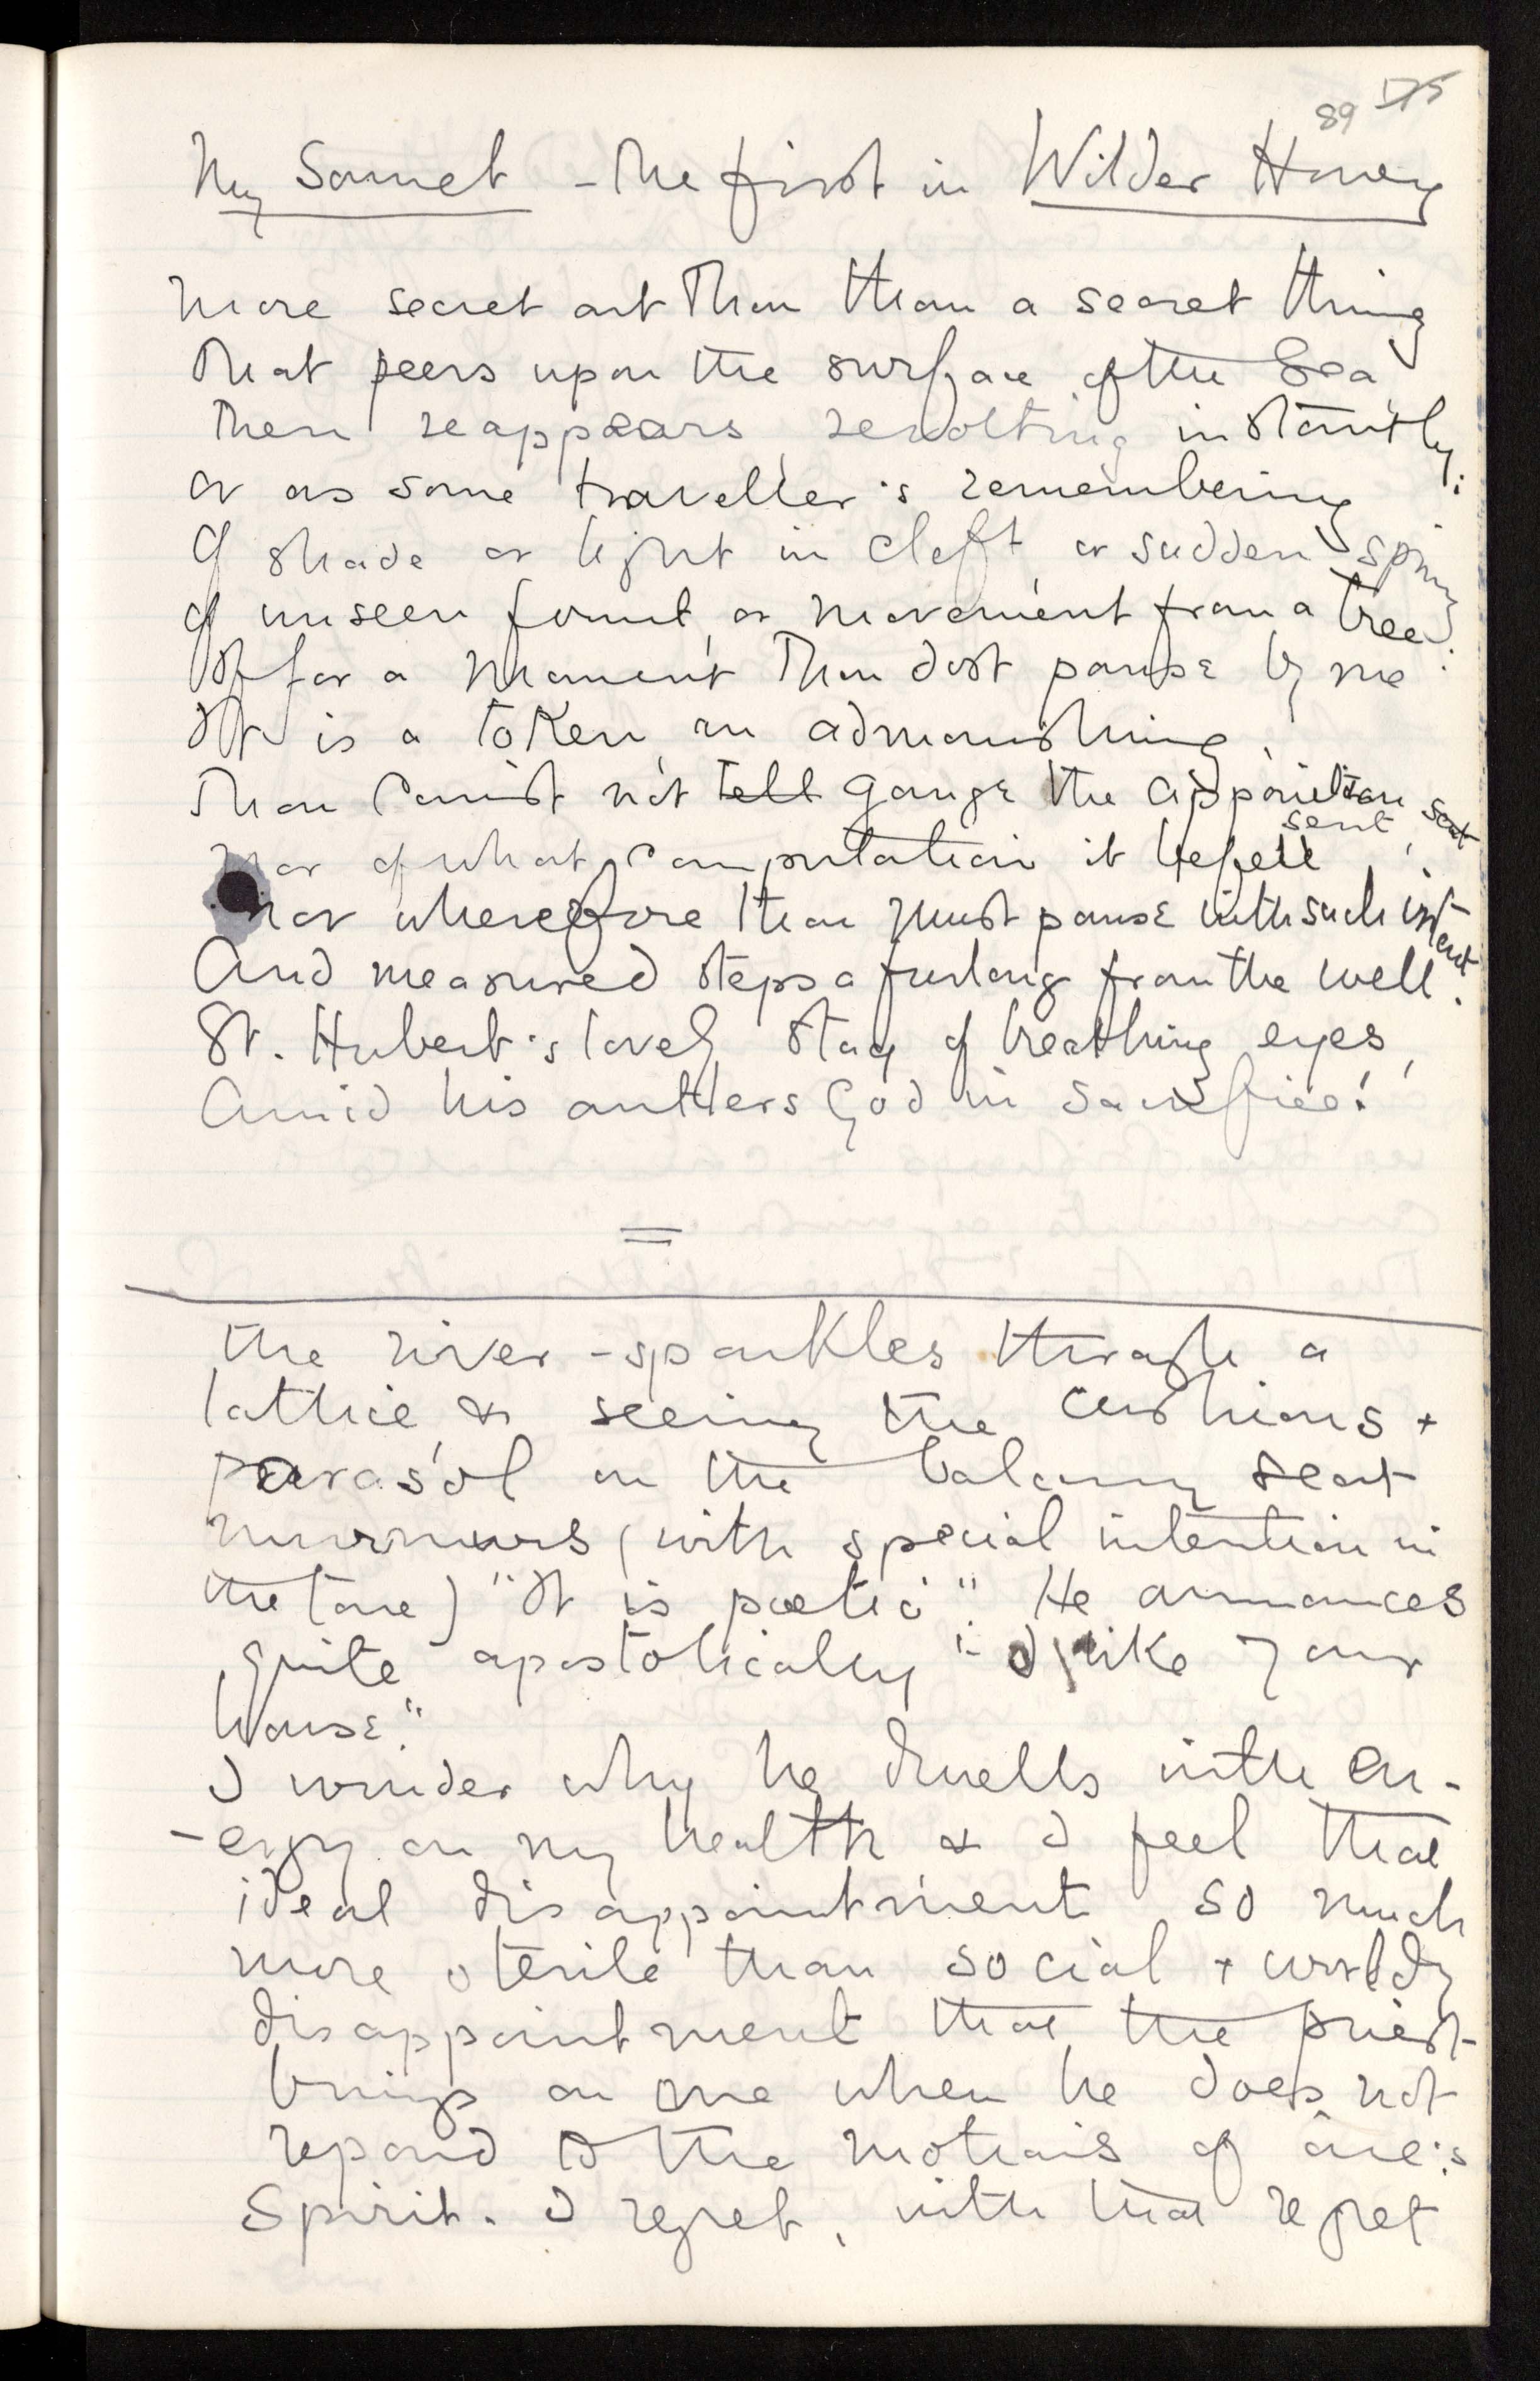 89
My Sonnet - The first in Wilder Honey
More secret art Thou than a secret thing
That peers upon the surface of the Sea,
Then reappears, revolting instantly:
Or as some traveller's remembering
Of shade or light in cleft, or sudden spring
Of unseen fount, or movement from a tree:
If for a moment Thou dost pause by me
It is a token, an admonishing.
Thou canst not tell gauge the apparition sent
sent,
Nor of what computation it befell
Nor wherefore thou must pause with such intent
And measured steps a furlong from the well.
St. Hubert's lovely stag of breathing eyes,
Amid his antlers God in Sacrifice!
=
the river-sparkles through a
lattice, & seeing the cushions +
parasol on the balcony seat
murmurs (with special intention in
the tone) "It is poetic". He announces
quite apostolically "I like your
house."
I wonder why he dwells with en-
-ergy on my health & I feel that
ideal disappointment so much
more sterile than social + worldly
disappointment that the priest
brings on one when he does not
repond to the motions of one's
Spirit. I regret, with that regret